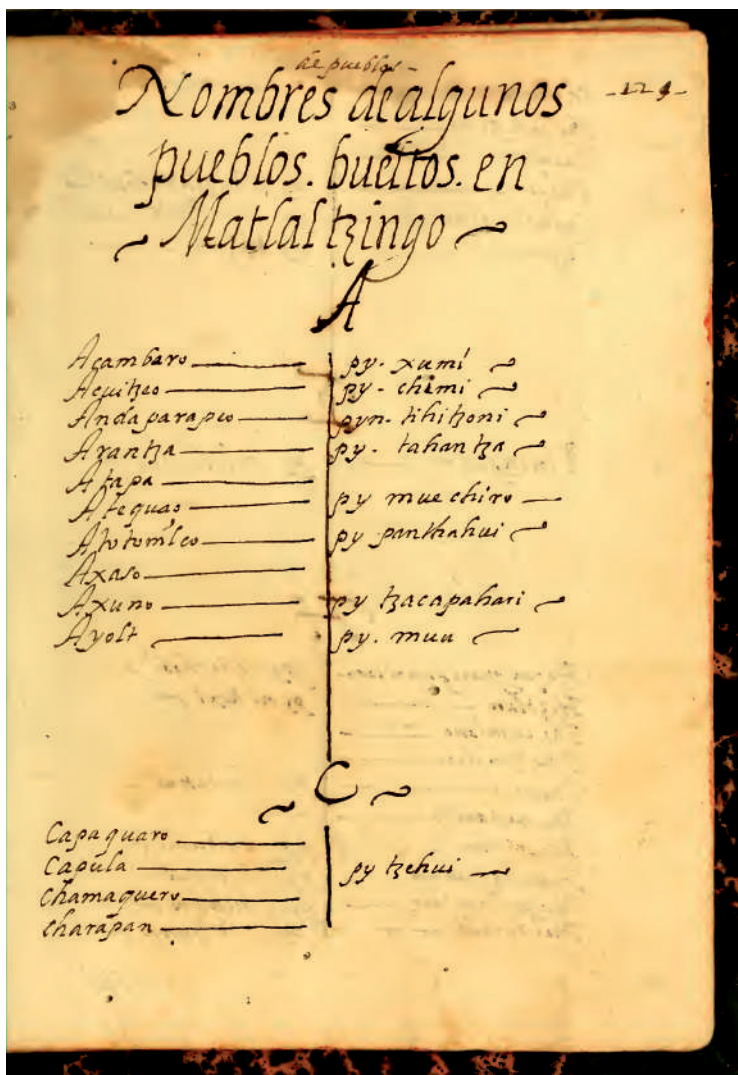 de pueblos -
Nombres de algunos
pueblos. bueltos. en
~ Matlaltzingo ~
-124-
A
Acambaro — py. xumi ~
Acuitzeo — py - chimi ~
Andaparapeo — pyn. tihitzoni ~
Arantza — py. tahantza ~
Atapa —
Ateguao — py muechiro —
Atotomlco — py panthahui ~
Axaso —
Axuno — py tzacapahari ~
Ayolt — py. muu ~
~ C ~
Capaquaro —
Capula — py tzehui ~
Chamaquero —
charapan —